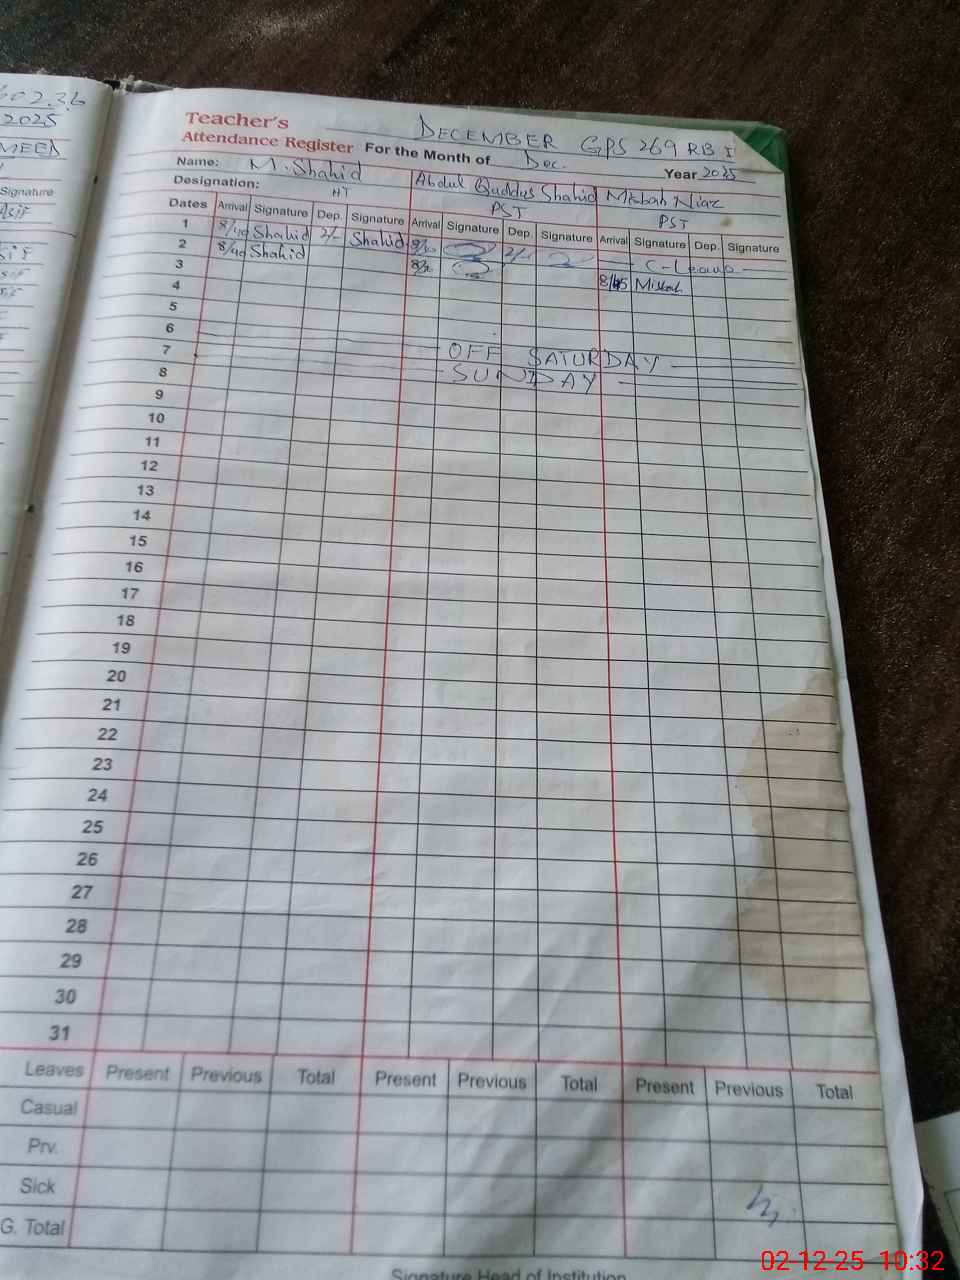 602.36
2025
MEED
Signature
Asif
Teacher's
DECEMBER GPS 269 RB I
Attendance Register For the Month of Dec. Year 2025
Name: M. Shahid Abdul Quddus Shahid Misbah Niaz
Designation: HT PST PST
Dates Arrival Signature Dep. Signature Arrival Signature Dep. Signature Arrival Signature Dep. Signature
1 8/40 Shahid 2/- Shahid C-Leave
2 8/40 Shahid
3 8/45 Misbah
4
5
6
7 OFF SATURDAY
8 SUNDAY
9
10
11
12
13
14
15
16
17
18
19
20
21
22
23
24
25
26
27
28
29
30
31
Leaves Present Previous Total Present Previous Total Present Previous Total
Casual
Prv.
Sick
G. Total
Signature Head of Institution
02-12-25 10:32